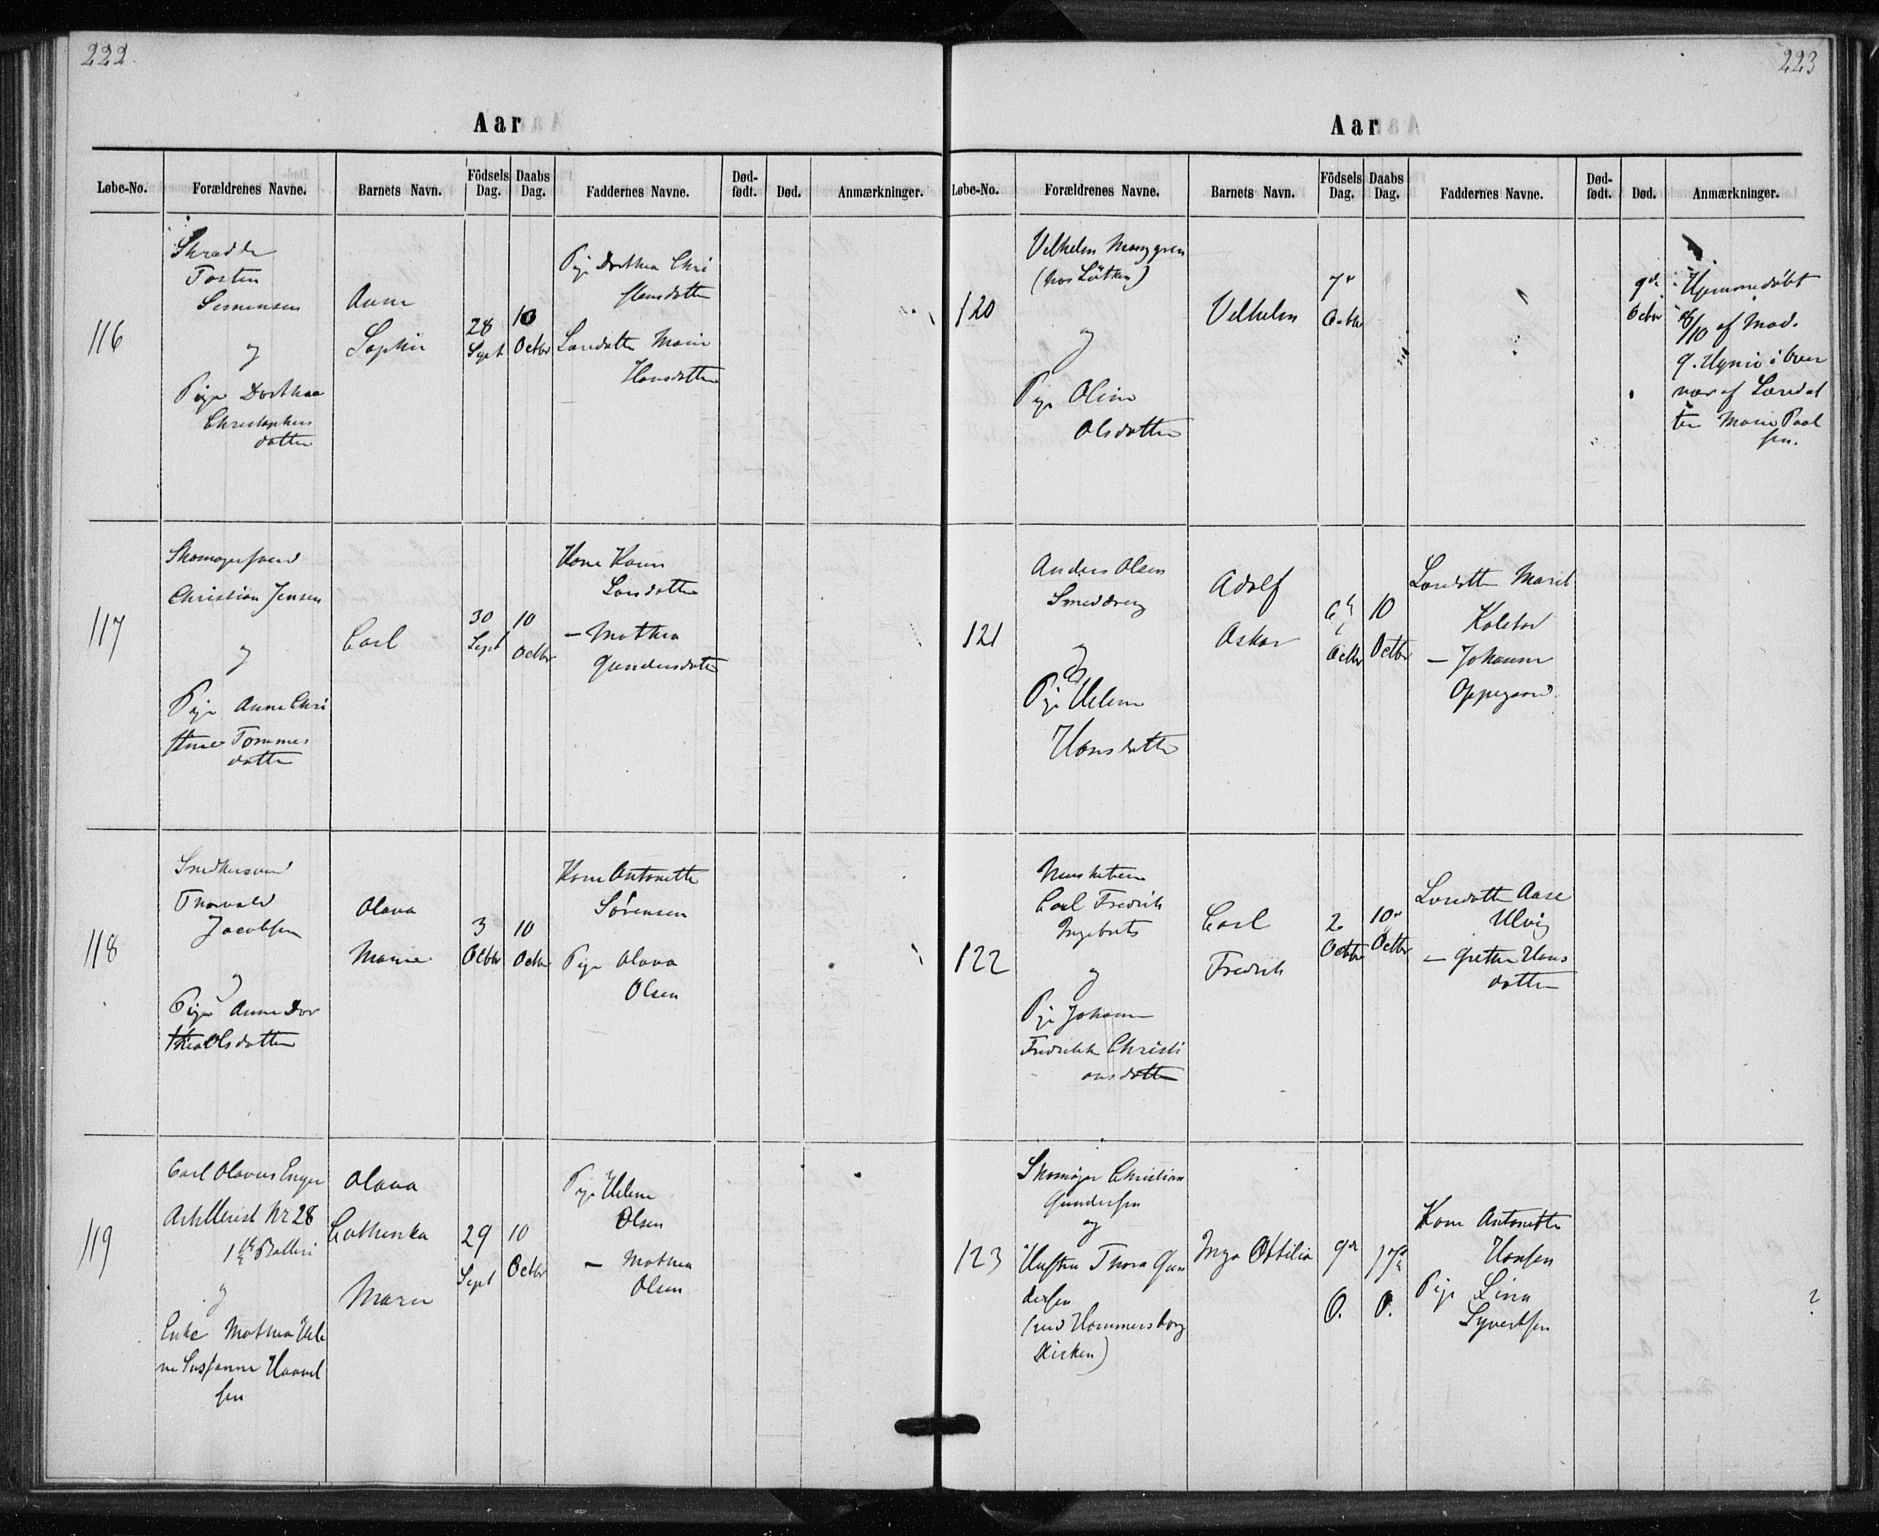 222.
Aar
Løbe-No. Forældrenes Navne. Barnets Navn. Födsels Dag. Daabs Dag. Faddernes Navne. Død-født. Død. Anmærkninger.
116
Torsten
Simensen
og
Pige Dorthea
Christophers
datter
Anne
Sophie
28
Sept
10
Octbr
Pige Dorthea Chri
stansdatter
Marie
Hansdatter
117
Skomagersvend
Christian Jensen
og
Pige Anne Chri
stine Tommes
datter
Carl
30
Sept
10
Octbr
Kone Karen
Larsdatter
— Mathea
Gundersdatter
118
Snedkersvend
Thorvald
Jacobsen
og
Pige Anne Dor
thea Olsdatter
Olava
Marie
3
Octbr
10
Octbr
Kone Antonette
Sørensen
Pige Olava
Olsen
119
Carl Olavus Enger
Artillerist Nr 28
Batteri
og
Enke Mathea Hele
ne Susanne Haavel
sen
Olava
Cathinka
Maren
29
Sept
10
Octbr
Pige Helene
Olsen
— Mathea
Olsen
223
Aar
Løbe-No. Forældrenes Navne. Barnets Navn. Födsels Dag. Daabs Dag. Faddernes Navne. Død-født. Død. Anmærkninger.
120
Vilhelm
(hos Lütken)
og
Pige Oline
Olsdatter
Vilhelm
7de
Octbr
9de
Octbr
Hjemmedøbt
8/10 af Mad.
ter Marie Paul
sen.
121
Anders Olsen
Smeddreng
og
Pige Helene
Hansdatter
Adolf
Oskar
6te
Octbr
10
Octbr
Marit
Kolstad
— Johanne
Oppegaard.
122
Carl Fredrik
Ingebrets
og
Pige Johanne
Fredrikke Christi
ansdatter
Carl
Fredrik
2
Octbr
10de
Octbr
Aase
Ulvig
— Grethe Hans
datter
123
Skomager Christian
Gundersen
og
Hustru Thora Gun
dersen
(ved Hammersborg
Kirken)
Inga Ottilia
9de
O.
17de
O.
Kone Antonette
Hansen
Pige Lina
Syvertsen
?